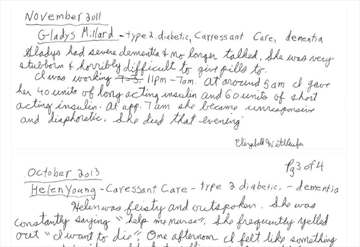 November 2011
Gladys Millard - type 2 diabetic, Caressant Care, dementia
Gladys had severe dementia & no longer talked. She was very
stubborn & horribly difficult to give pills to.
I was working 7-3 11pm - 7am. At around 5am I gave
her 40 units of long acting insulin and 60 units of short
acting insulin. At app. 7am she became unresponsive
and diaphoretic. She died that evening
Elizabeth Wettlaufer
Pg 3 of 4
October 2013
Helen Young - Caressant Care - type 2 diabetic. - dementia
Helen was feisty and outspoken. She was
constantly saying "help me nurse". She frequently yelled
out "I want to die". One afternoon I felt like something